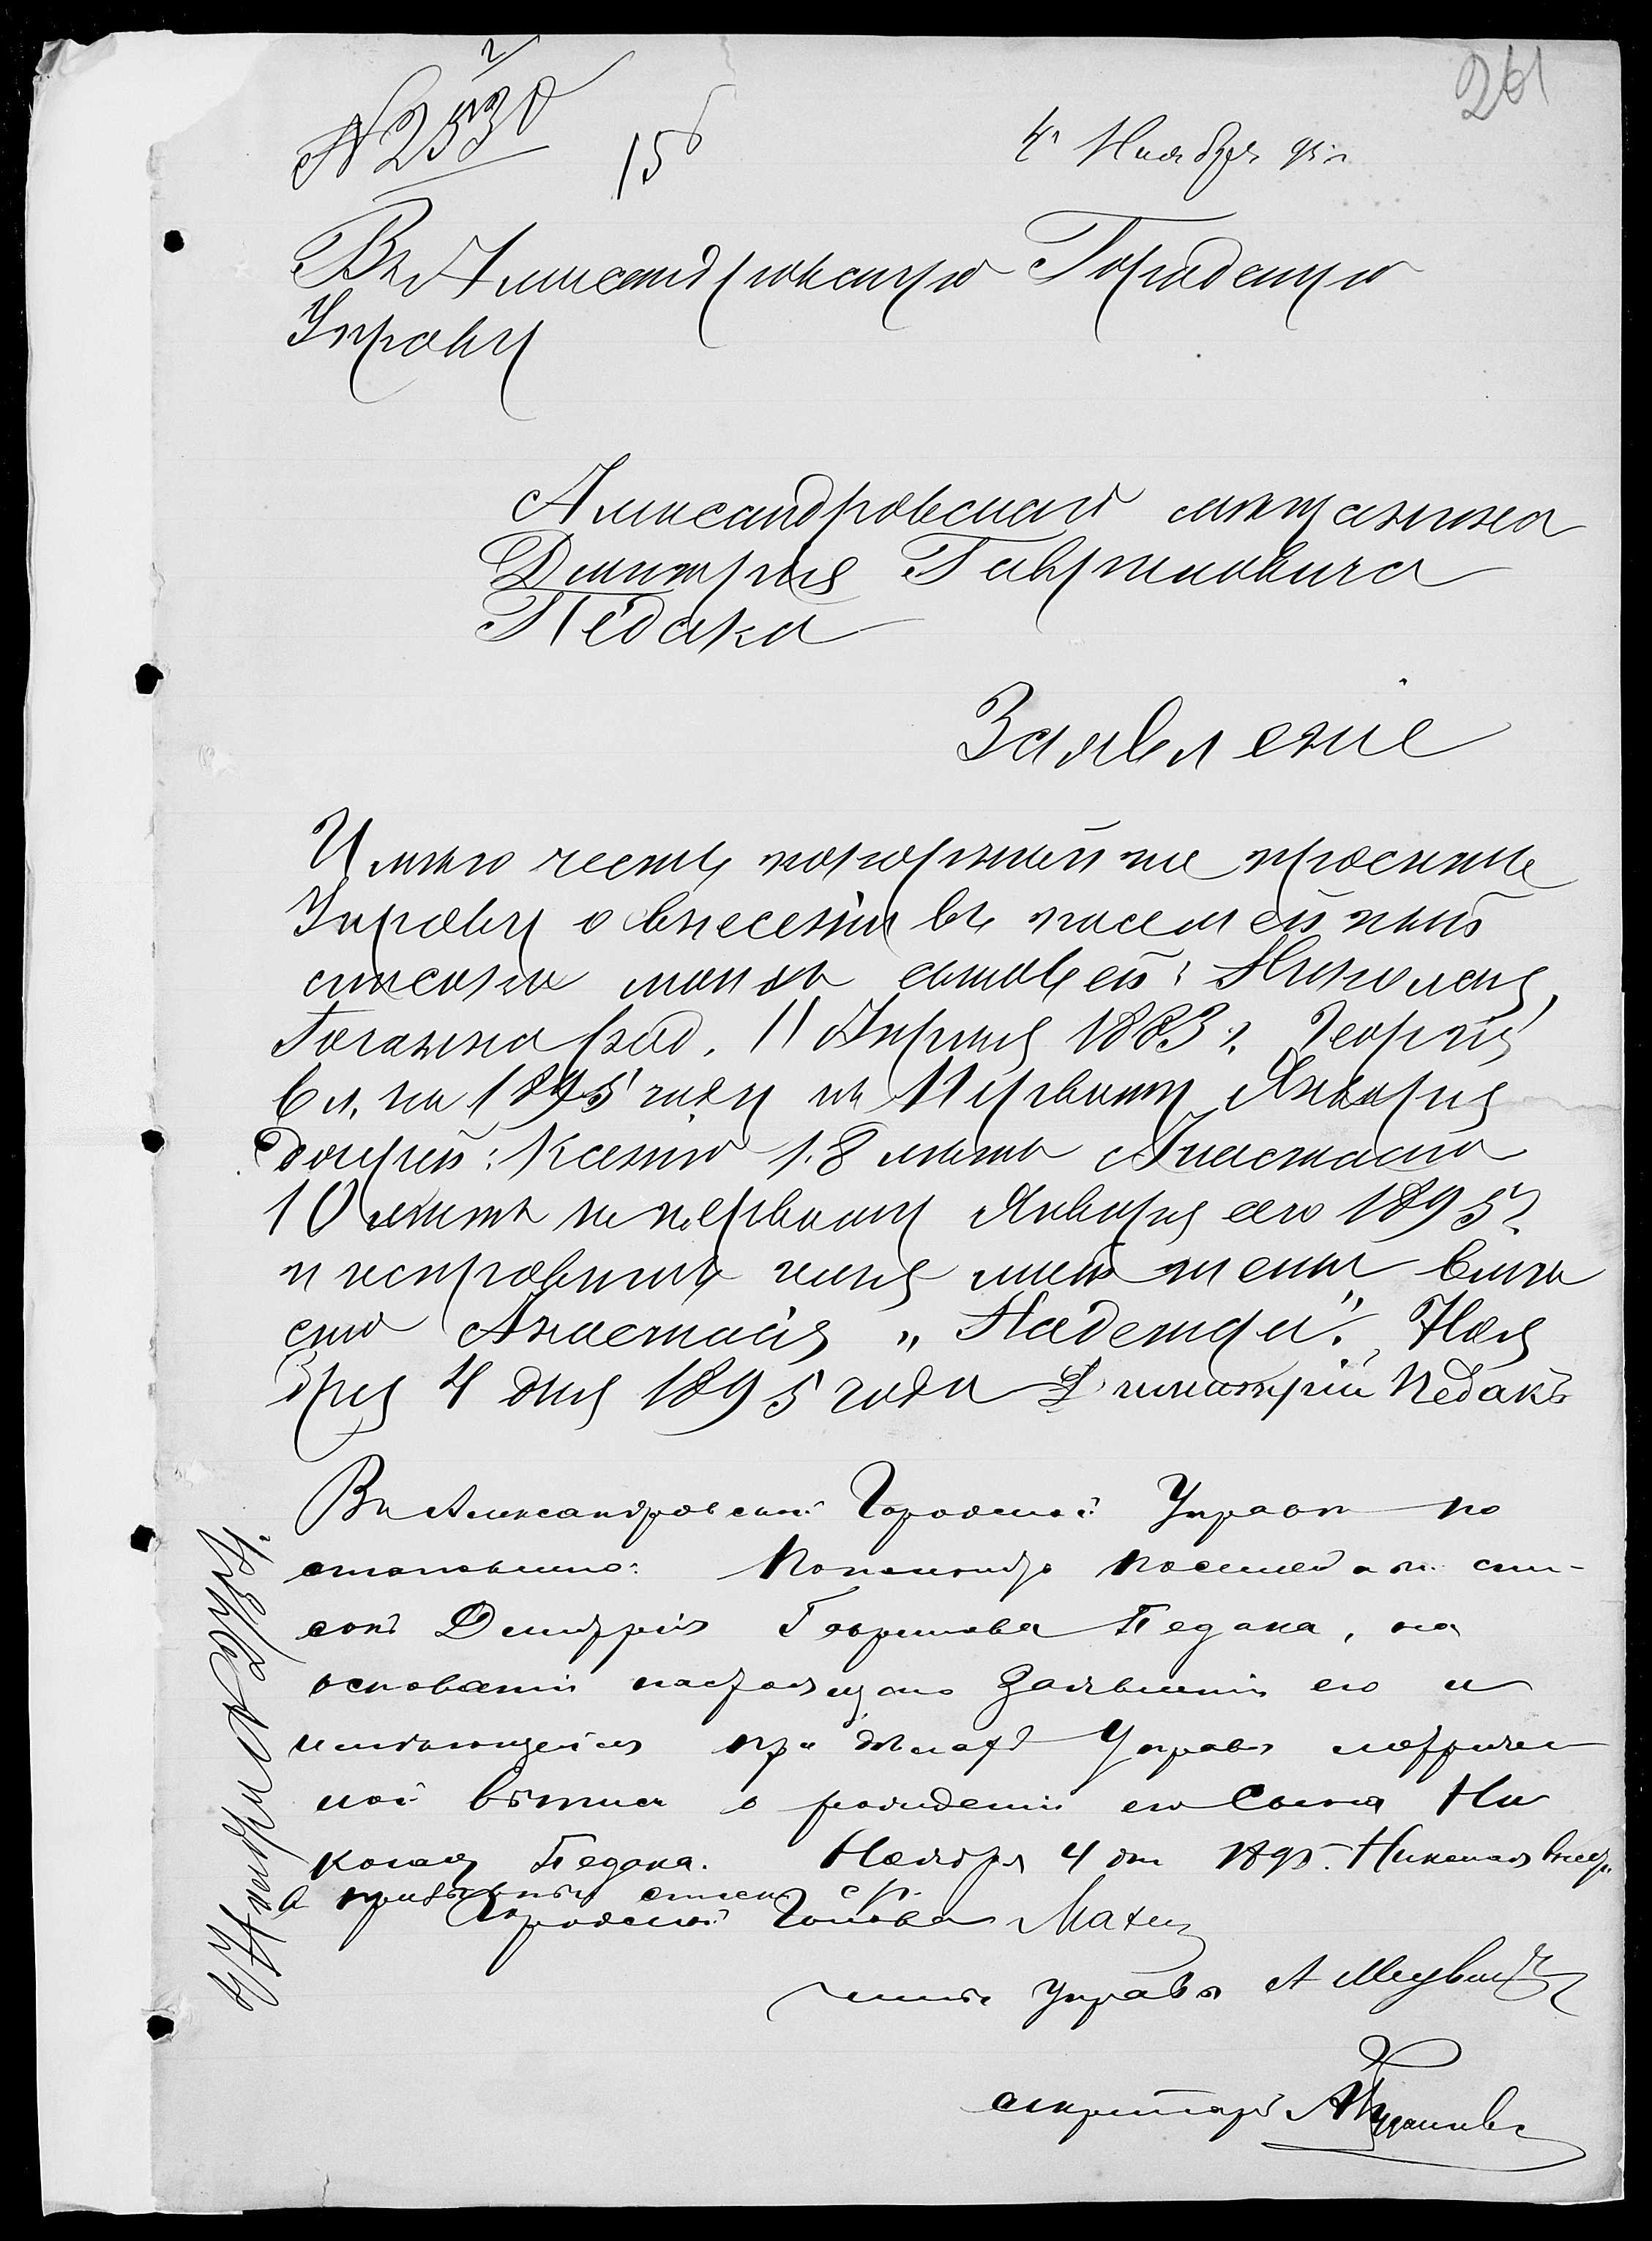 261
№ 2530
15
4 Ноября 95 г
Въ Александровскую Городскую
Управу
Александровскаго мѣщанина
Димитрія Гавриловича
Педака
Заявленіе
Имѣю честь покорнѣйше просить
Управу о внесеніи въ посемейный
списокъ моихъ сыновей: Николая,
род. 11 Апрѣля 1883 г. Георгій
6 л. на 1895 году къ Первому Января
дочерей: Ксенію 18 лѣтъ Анастасія
10 лѣтъ къ первому Января сего 1895 г.
и исправить имя моей жены вмѣ
сто Анастасія „Надежда". Ноя
бря 4 дня 1895 года Димитрій Педакъ
Въ Александровской Городской Управѣ по
становлено: посемейный спи-
сокъ Димитрія Гаврилова Педака, на
основаніи настоящаго Заявленія его и
имѣющейся при дѣлахъ Управы метричес
кой выписи о рожденіи его Сына Ни
колая Педака. Ноября 4 дня 1895. Николая
в призывный списокъ
Городской Голова
Членъ Управы
секретарь